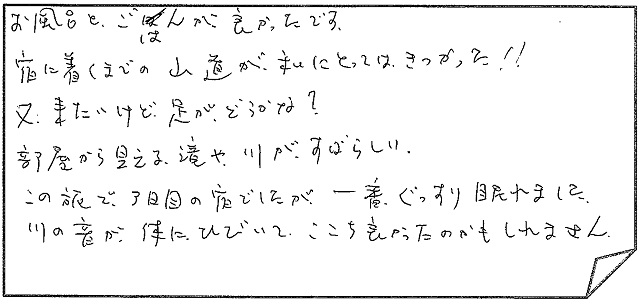 お風呂と、ごはんが、良かったです。
宿に着くまでの山道が、私にとっては、きつかった!!
又、来たいけど、足が、どうかな?
部屋から見える、滝や、川が、すばらしい。
この旅で、3日目の宿でしたが、一番、ぐっすり眠れました。
川の音が、体に、ひびいて、ここち良かったのかもしれません。